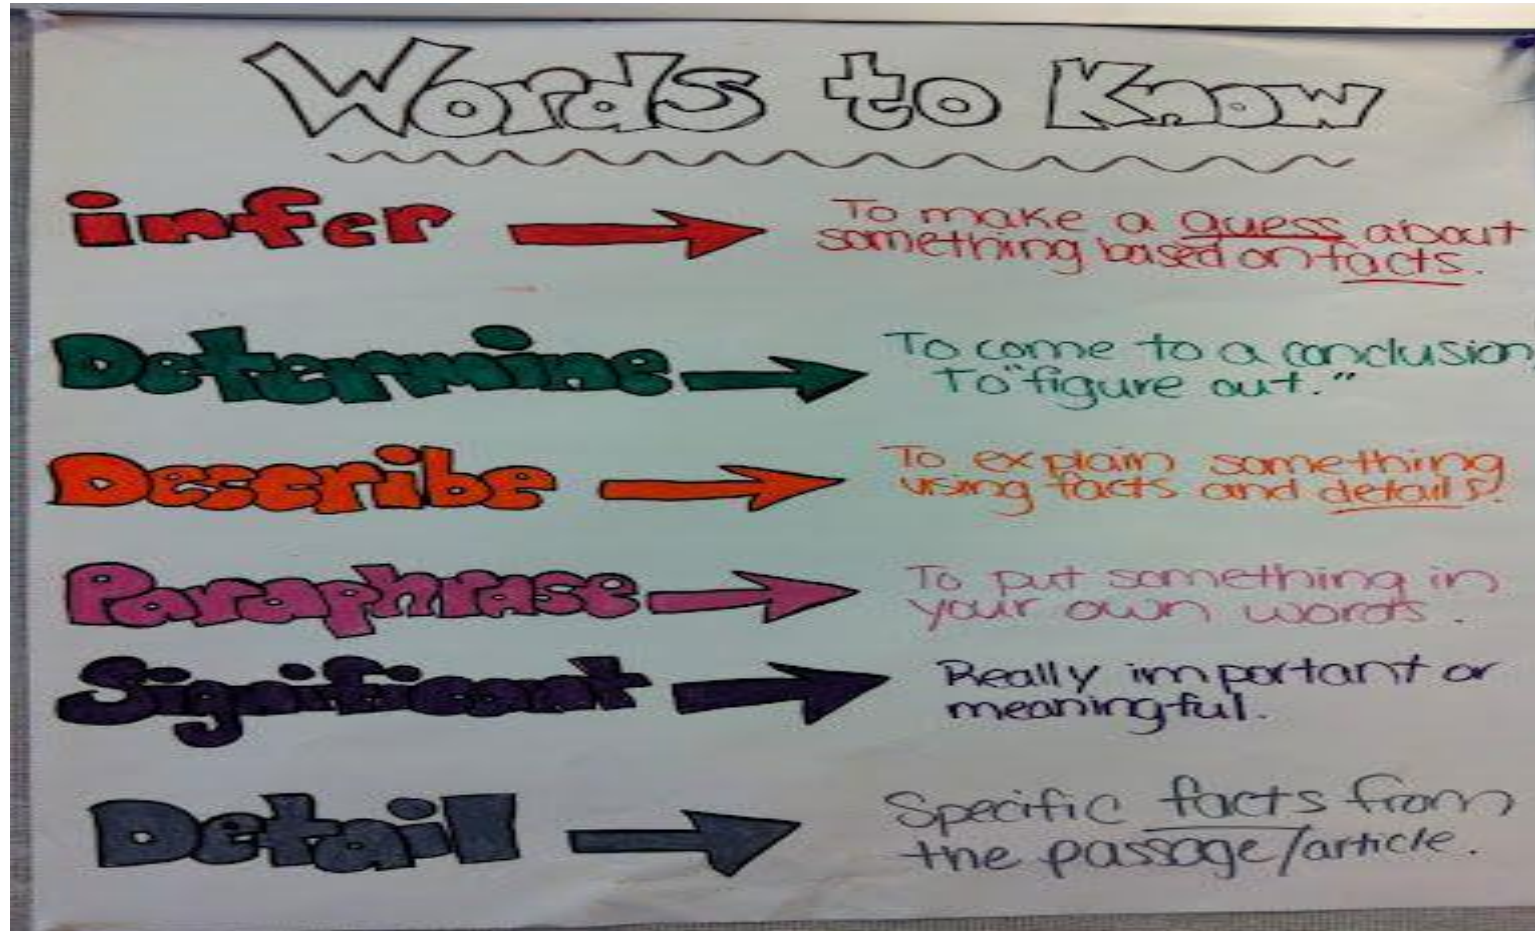 Words to Know
infer
To make a guess about
something based on facts.
Determine
To come to a conclusion,
To "figure out."
Describe
To explain something
using facts and details.
Paraphrase
To put something in
your own words.
Significant
Really important or
meaningful.
Detail
Specific facts from
the passage/article.